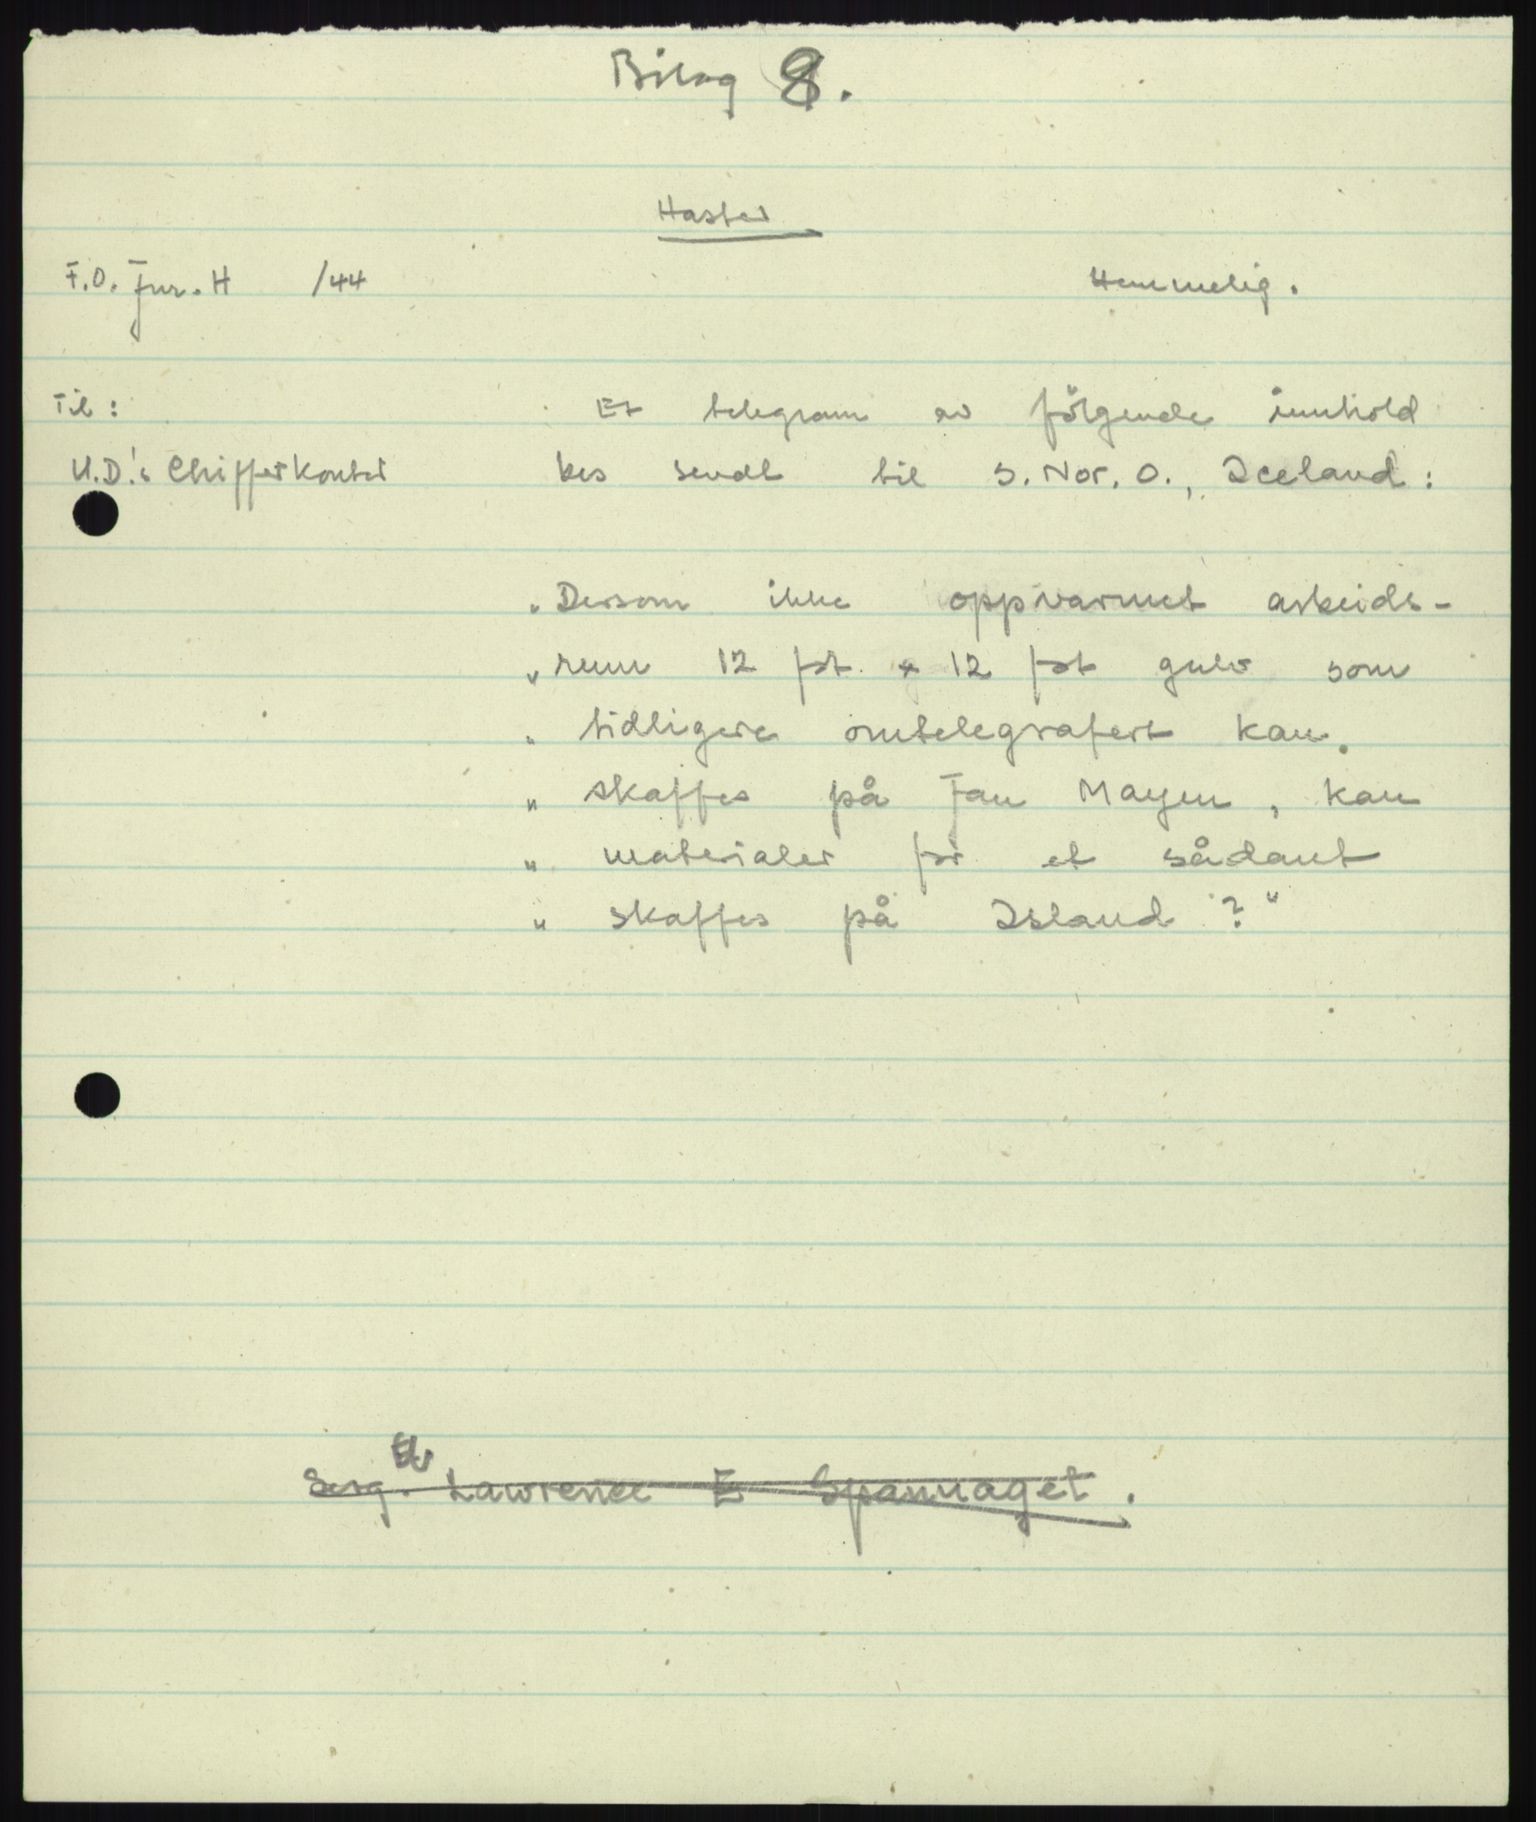 Bilag 8.
Haster
F.O. Jnr. H /44 Hemmelig.
Til: Et telegram av følgende innhold
U.D.'s Chifferkontor bes sendt til S. Nor. O., Iceland:
"Dersom ikke oppvarmet arbeids-
" rum 12 fot x 12 fot gulv som
" tidligere omtelegrafert kan
" skaffes på Jan Mayen, kan
" materialer for et sådant
" skaffes på Island?"
Serg. Lawrence E Spannaget.